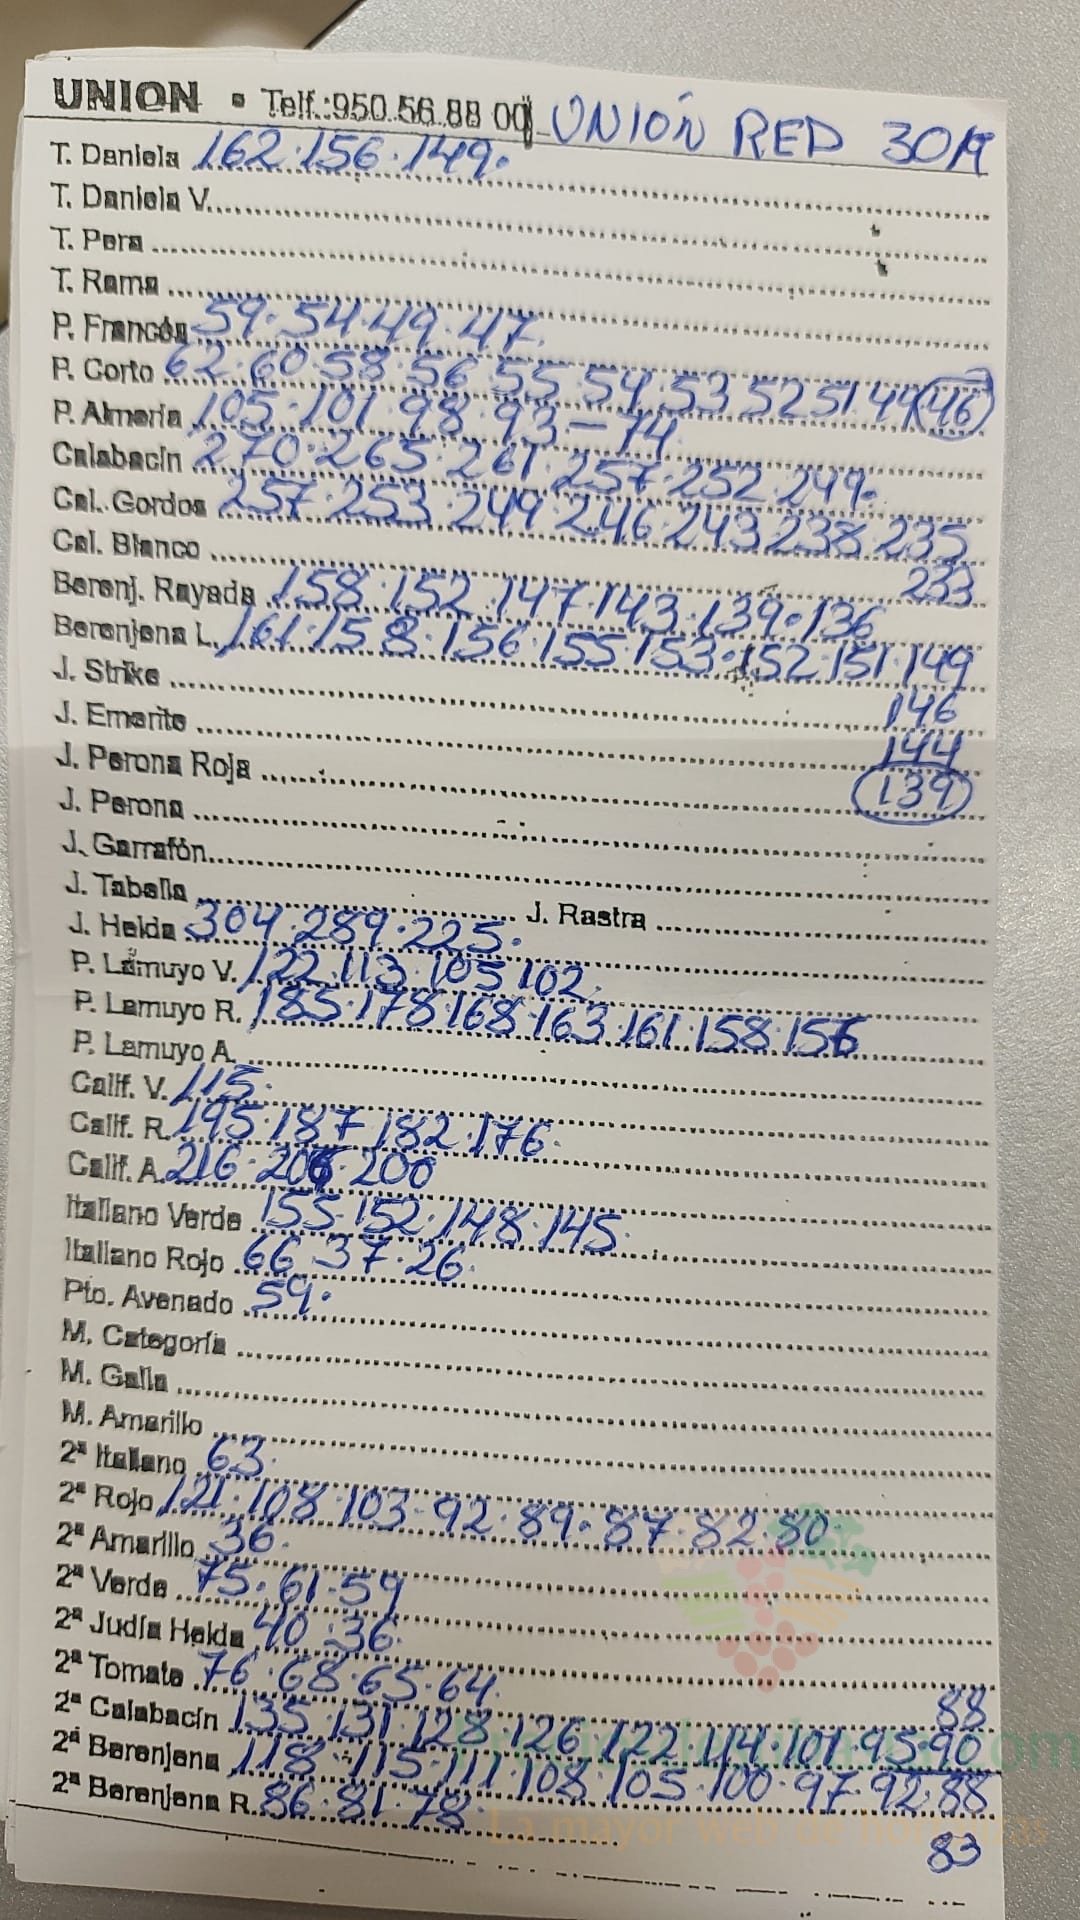 UNION • Telf.:950.56.88 00 UNIÓN RED 30/9
T. Daniela 162.156.149.
T. Daniela V.
T. Pera
T. Rama
P. Francés 59.54.49.47.
P. Corto 62.60.58.56 55 54.53 52 51.49 46
P. Almería 105.101.98.93-74
Calabacín 270.265.261.257.252.249.
Cal. Gordos 257.253.249.246.243 238.235
233
Cal. Blanco
Berenj. Rayada 158.152.147.143.139.136
Berenjena L. 161.158.156.155.153.152.151.149
146
144
139
J. Strike
J. Emerite
J. Perona Roja
J. Perona
J. Garrafón
J. Tabella J. Rastra
J. Helda 304.289.225.
P. Lamuyo V. 122.113.105 102.
P. Lamuyo R. 185.178 168.163.161.158.156
P. Lamuyo A.
Calif. V. 115.
Calif. R. 195.187 182.176.
Calif. A. 216.206.200
Italiano Verde 155.152.148.145.
Italiano Rojo 66 37.26.
Pto. Avenado 59.
M. Categoría
M. Galia
M. Amarillo
2ª Italiano 63.
2ª Rojo 121.108 103-92.89.87.82.80.
2ª Amarillo 36.
2ª Verde 75.61.59
2ª Judía Helda 40.36.
2ª Tomate 76.68.65.64.
88
2ª Calabacín 135.131.128.126.122.114.101.95.90
2ª Berenjena 118.115.111.108.105.100.97.92.88
2ª Berenjena R. 86.81.78.
83
La mayor web de hortalizas